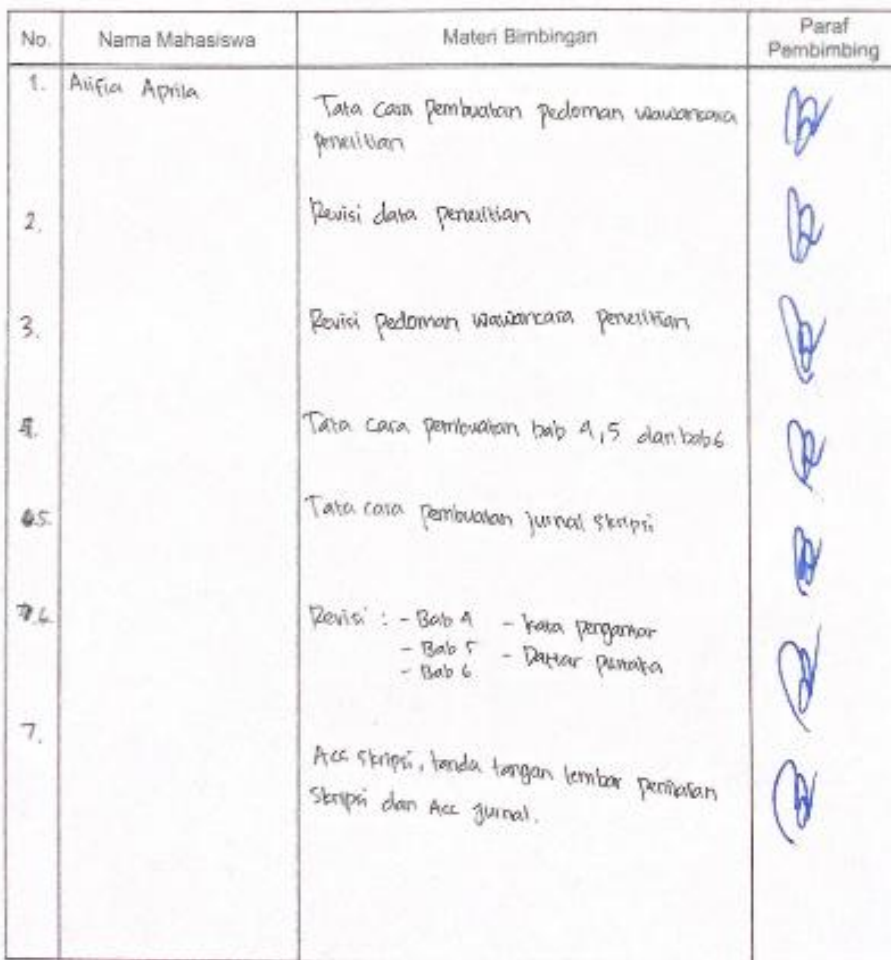 No. Nama Mahasiswa Materi Bimbingan Paraf Pembimbing
1. Alifia Aprilia Tata cara pembuatan pedoman wawancara
penelitian
2. Revisi data penelitian
3. Revisi pedoman wawancara penelitian
4. Tata cara pembuatan bab 4, 5 dan bab 6
5. Tata cara pembuatan jurnal skripsi
6. Revisi : - Bab 4 - Kata pengantar
- Bab 5 - Daftar pustaka
- Bab 6
7. Acc skripsi, tanda tangan lembar
skripsi dan Acc jurnal.